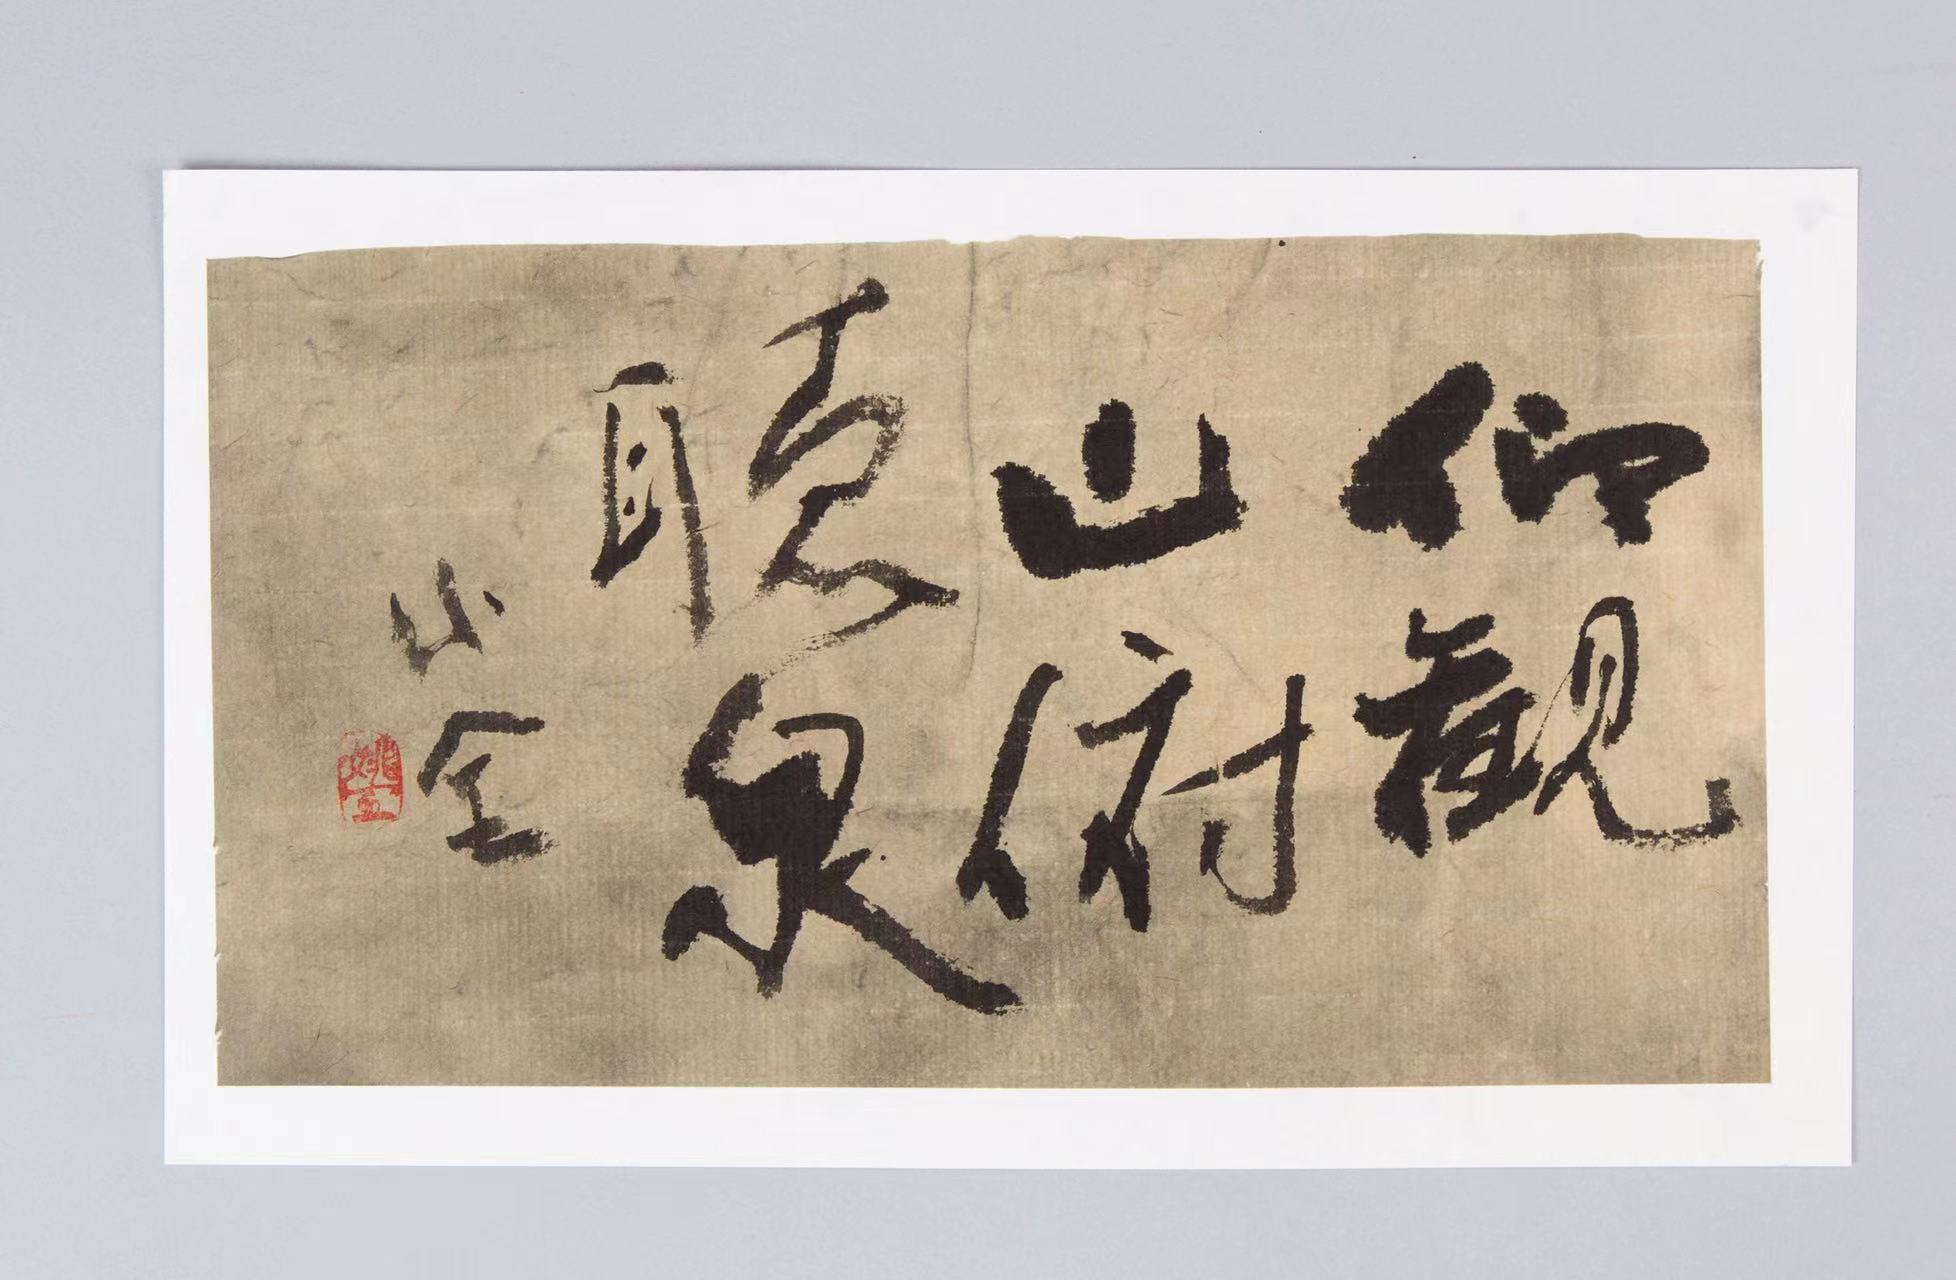 仰觀
山俯
聽泉
小全
姚